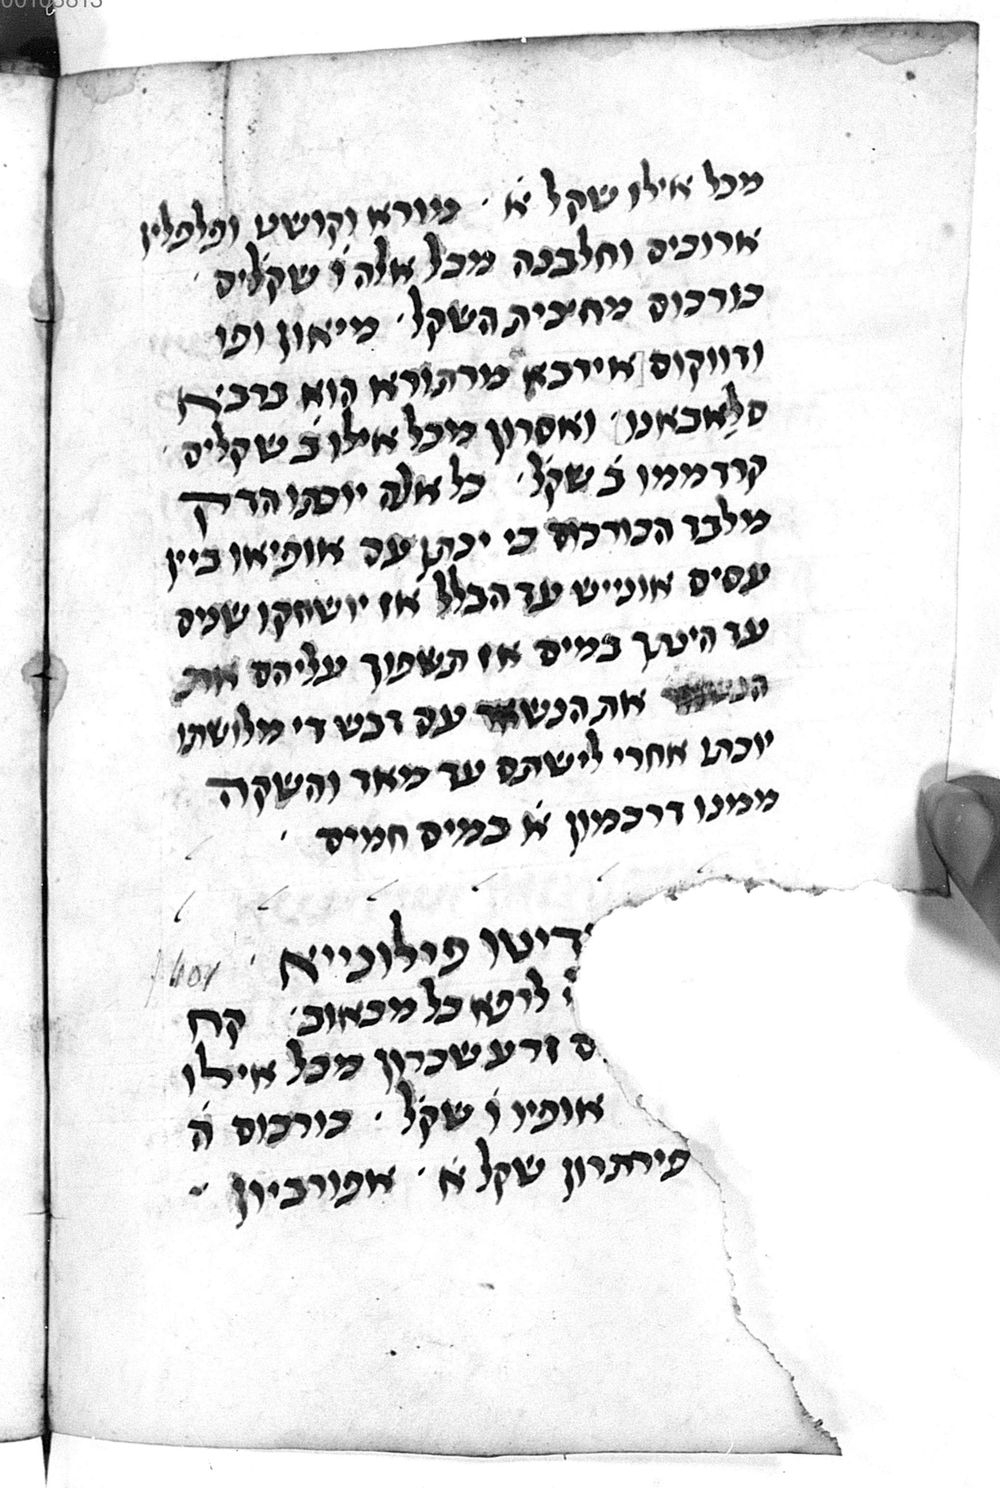 מכל אילו שקל א֗ · מורא וקושט ופלפלין
ארוכים וחלבנה מכל אלה ו֗ שקלים ·
כורכום מחצית השקל · מיאון ופו
ודווקוס אירבא מרתורא הוא ברבא
סלאבאנו · ואסרון מכל אילו ב֗ שקלים ·
קרדממו ב֗ שקל · כל אלה יוכתו הדק
מלבד הכורכום כי יכתן עם אופיאו ביין
עסיס אונייש עד הבלל אז יושחקו שנים
עד היטך במים אז תשפוך עליהם את
את הנשאר עם דבש די מלושתו
יוכתו אחרי לישתם עד מאד והשקה
ממנו דרכמון א֗ במים חמים ·
דיטו פילונייא ·
לרפא כל מכאוב · קח
ם זרע שכרון מכל אילו
אופיו ו֗ שקל · כורכום ה֗
פירתרון שקל א֗ · אפורביון